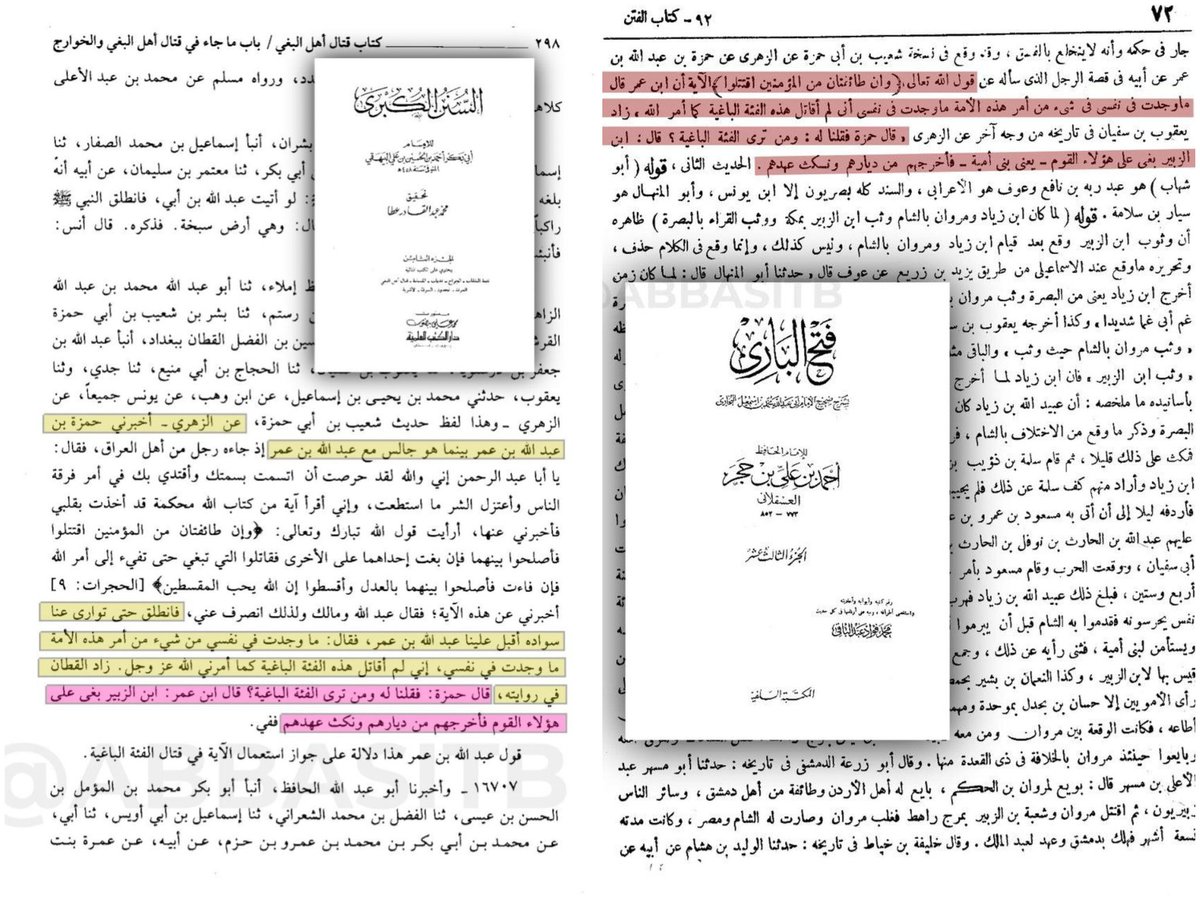 ٧٢
٩٢ - كتاب الفتن
جار فى حكمه وأنه لاينخلع بالفسق ، وقد وقع فى نسخة شعيب بن أبى حمزة عن الزهرى عن حمزة بن عبد الله بن
عمر عن أبيه فى قصة الرجل الذى سأله عن قول الله تعالى ﴿وإن طائفتان من المؤمنين اقتتلوا﴾ الآية أن ابن عمر قال
ماوجدت فى نفسى فى شىء من أمر هذه الأمة ماوجدت فى نفسى أنى لم أقاتل هذه الفئة الباغية كما أمر الله ، زاد
يعقوب بن سفيان فى تاريخه من وجه آخر عن الزهرى « قال حمزة فقلنا له : ومن ترى الفئة الباغية ؟ قال : ابن
الزبير بغى على هؤلاء القوم - يعنى بنى أمية - فأخرجهم من ديارهم ونكث عهدهم . الحديث الثانى ، قوله ( أبو
شهاب ) هو عبد ربه بن نافع وعوف هو الأعرابى ، والسند كله بصريون إلا ابن يونس ، وأبو المنهال هو
سيار بن سلامة . قوله ( لما كان ابن زياد ومروان بالشام وثب ابن الزبير بمكة ووثب القراء بالبصرة ) ظاهره
أن وثوب ابن الزبير وقع بعد قيام ابن زياد ومروان بالشام ، وليس كذلك ، وإنما وقع فى الكلام حذف ،
وتحريره ماوقع عند الاسماعيلى من طريق يزيد بن زريع عن عوف قال « حدثنا أبو المنهال قال : لما كان زمن
أخرج ابن زياد يعنى من البصرة وثب مروان
غم أبى غما شديدا » وكذا أخرجه يعقوب بن
« وثب مروان بالشام حيث وثب » والباقى
« وثب ابن الزبير » فان ابن زياد لما أخرج
بأسانيده ما ملخصه : أن عبيد الله بن زياد كان
البصرة وذكر ما وقع من الاختلاف بالشام ،
فمكث على ذلك قليلا ، ثم قام سلمة بن ذؤيب
ابن زياد وأراد منهم كف سلمة عن ذلك فلم
فأردفه ليلا إلى أن أتى به مسعود بن عمرو بن
عليهم عبد الله بن الحارث بن نوفل بن الحارث
أبى سفيان ، ووقعت الحرب وقام مسعود بأمر
أربع وستين ، فبلغ ذلك عبيد الله بن زياد فهرب
نفس يحرسونه فقدموا به الشام قبل أن يبرموا
ويستأمن لبنى أمية ، فثنى رأيه عن ذلك ، وجمع
قيس بها لابن الزبير ، وكذا النعمان بن بشير بحمص
رأى الأمويين إلا حسان بن بحدل بموحدة
أطاعه ، فكانت الوقعة بين مروان ومن معه
فبايعوا حينئذ مروان بالخلافة فى ذى القعدة منها . وقال أبو زرعة الدمشقى فى تاريخه : حدثنا أبو مسهر عبد
الأعلى بن مسهر قال : بويع لمروان بن الحكم ، بايع له أهل الأردن وطائفة من أهل دمشق ، وسائر الناس
زبيريون ، ثم اقتتل مروان وشعبة بن الزبير بمرج راهط فغلب مروان وصارت له الشام ومصر ، وكانت مدته
تسعة أشهر فهلك بدمشق وعهد لعبد الملك . وقال خليفة بن خياط فى تاريخه : حدثنا الوليد بن هشام عن أبيه عن
@ABBASITB
فتح البارى
بشرح صحيح الامام أبى عبد الله محمد بن إسماعيل البخارى
للإمام الحافظ
أحمد بن على بن حجر
العسقلانى
٧٧٣ - ٨٥٢
الجزء الثالث عشر
رقم كتبه وأبوابه وأحاديثه
محمد فؤاد عبد الباقى
المكتبة السلفية
٢٩٨
كتاب قتال أهل البغي / باب ما جاء في قتال أهل البغي والخوارج
دد، ورواه مسلم عن محمد بن عبد الأعلى
كلاهـ
بشران، أنبأ إسماعيل بن محمد الصفار، ثنا
إسما
أبي بكر، ثنا معتمر بن سليمان، عن أبيه أنه
بلغه
: لو أتيت عبد الله بن أبي، فانطلق النبي ﷺ
راكبا
ال: وهي أرض سبخة. فذكره. قال أنس:
فأنبئـ
ـظ إملاء، ثنا أبو عبد الله محمد بن عبد الله
الزاهـ
بن رستم، ثنا بشر بن شعيب بن أبي حمزة
القرشـ
ـسين بن الفضل القطان ببغداد، أنبأ عبد الله بن
جعفر بن
ثنا الحجاج بن أبي منيع، ثنا جدي، وثنا
يعقوب، حدثني محمد بن يحيى بن إسماعيل، عن ابن وهب، عن يونس جميعاً، عن
الزهري ـ وهذا لفظ حديث شعيب بن أبي حمزة، عن الزهري ـ أخبرني حمزة بن
عبد الله بن عمر بينما هو جالس مع عبد الله بن عمر إذ جاءه رجل من أهل العراق، فقال:
يا أبا عبد الرحمن إني والله لقد حرصت أن اتسمت بسمتك وأقتدي بك في أمر فرقة
الناس وأعتزل الشر ما استطعت، وإني أقرأ آية من كتاب الله محكمة قد أخذت بقلبي
فأخبرني عنها، أرأيت قول الله تبارك وتعالى: ﴿وإن طائفتان من المؤمنين اقتتلوا
فأصلحوا بينهما فإن بغت إحداهما على الأخرى فقاتلوا التي تبغي حتى تفيء إلى أمر الله
فإن فاءت فأصلحوا بينهما بالعدل وأقسطوا إن الله يحب المقسطين﴾ [الحجرات: ٩]
أخبرني عن هذه الآية؛ فقال عبد الله ومالك ولذلك انصرف عني، فانطلق حتى توارى عنا
سواده أقبل علينا عبد الله بن عمر، فقال: ما وجدت في نفسي من شيء من أمر هذه الأمة
ما وجدت في نفسي، إني لم أقاتل هذه الفئة الباغية كما أمرني الله عز وجل. زاد القطان
في روايته، قال حمزة: فقلنا له ومن ترى الفئة الباغية؟ قال ابن عمر: ابن الزبير بغى على
هؤلاء القوم فأخرجهم من ديارهم ونكث عهدهم ففي.
قول عبد الله بن عمر هذا دلالة على جواز استعمال الآية في قتال الفئة الباغية.
١٦٧٠٧ ـ وأخبرنا أبو عبد الله الحافظ، أنبأ أبو بكر محمد بن المؤمل بن
الحسن بن عيسى، ثنا الفضل بن محمد الشعراني، ثنا إسماعيل بن أبي أويس، ثنا أبي،
عن محمد بن أبي بكر بن محمد بن عمرو بن حزم، عن أبيه، عن عمرة بنت
@ABBASITB
السنن الكبرى
للإمام
أبي بكر أحمد بن الحسين بن علي البيهقي
المتوفى سنة ٤٥٨ هـ
تحقيق
محمد عبد القادر عطا
الجزء الثامن
دار الكتب العلمية